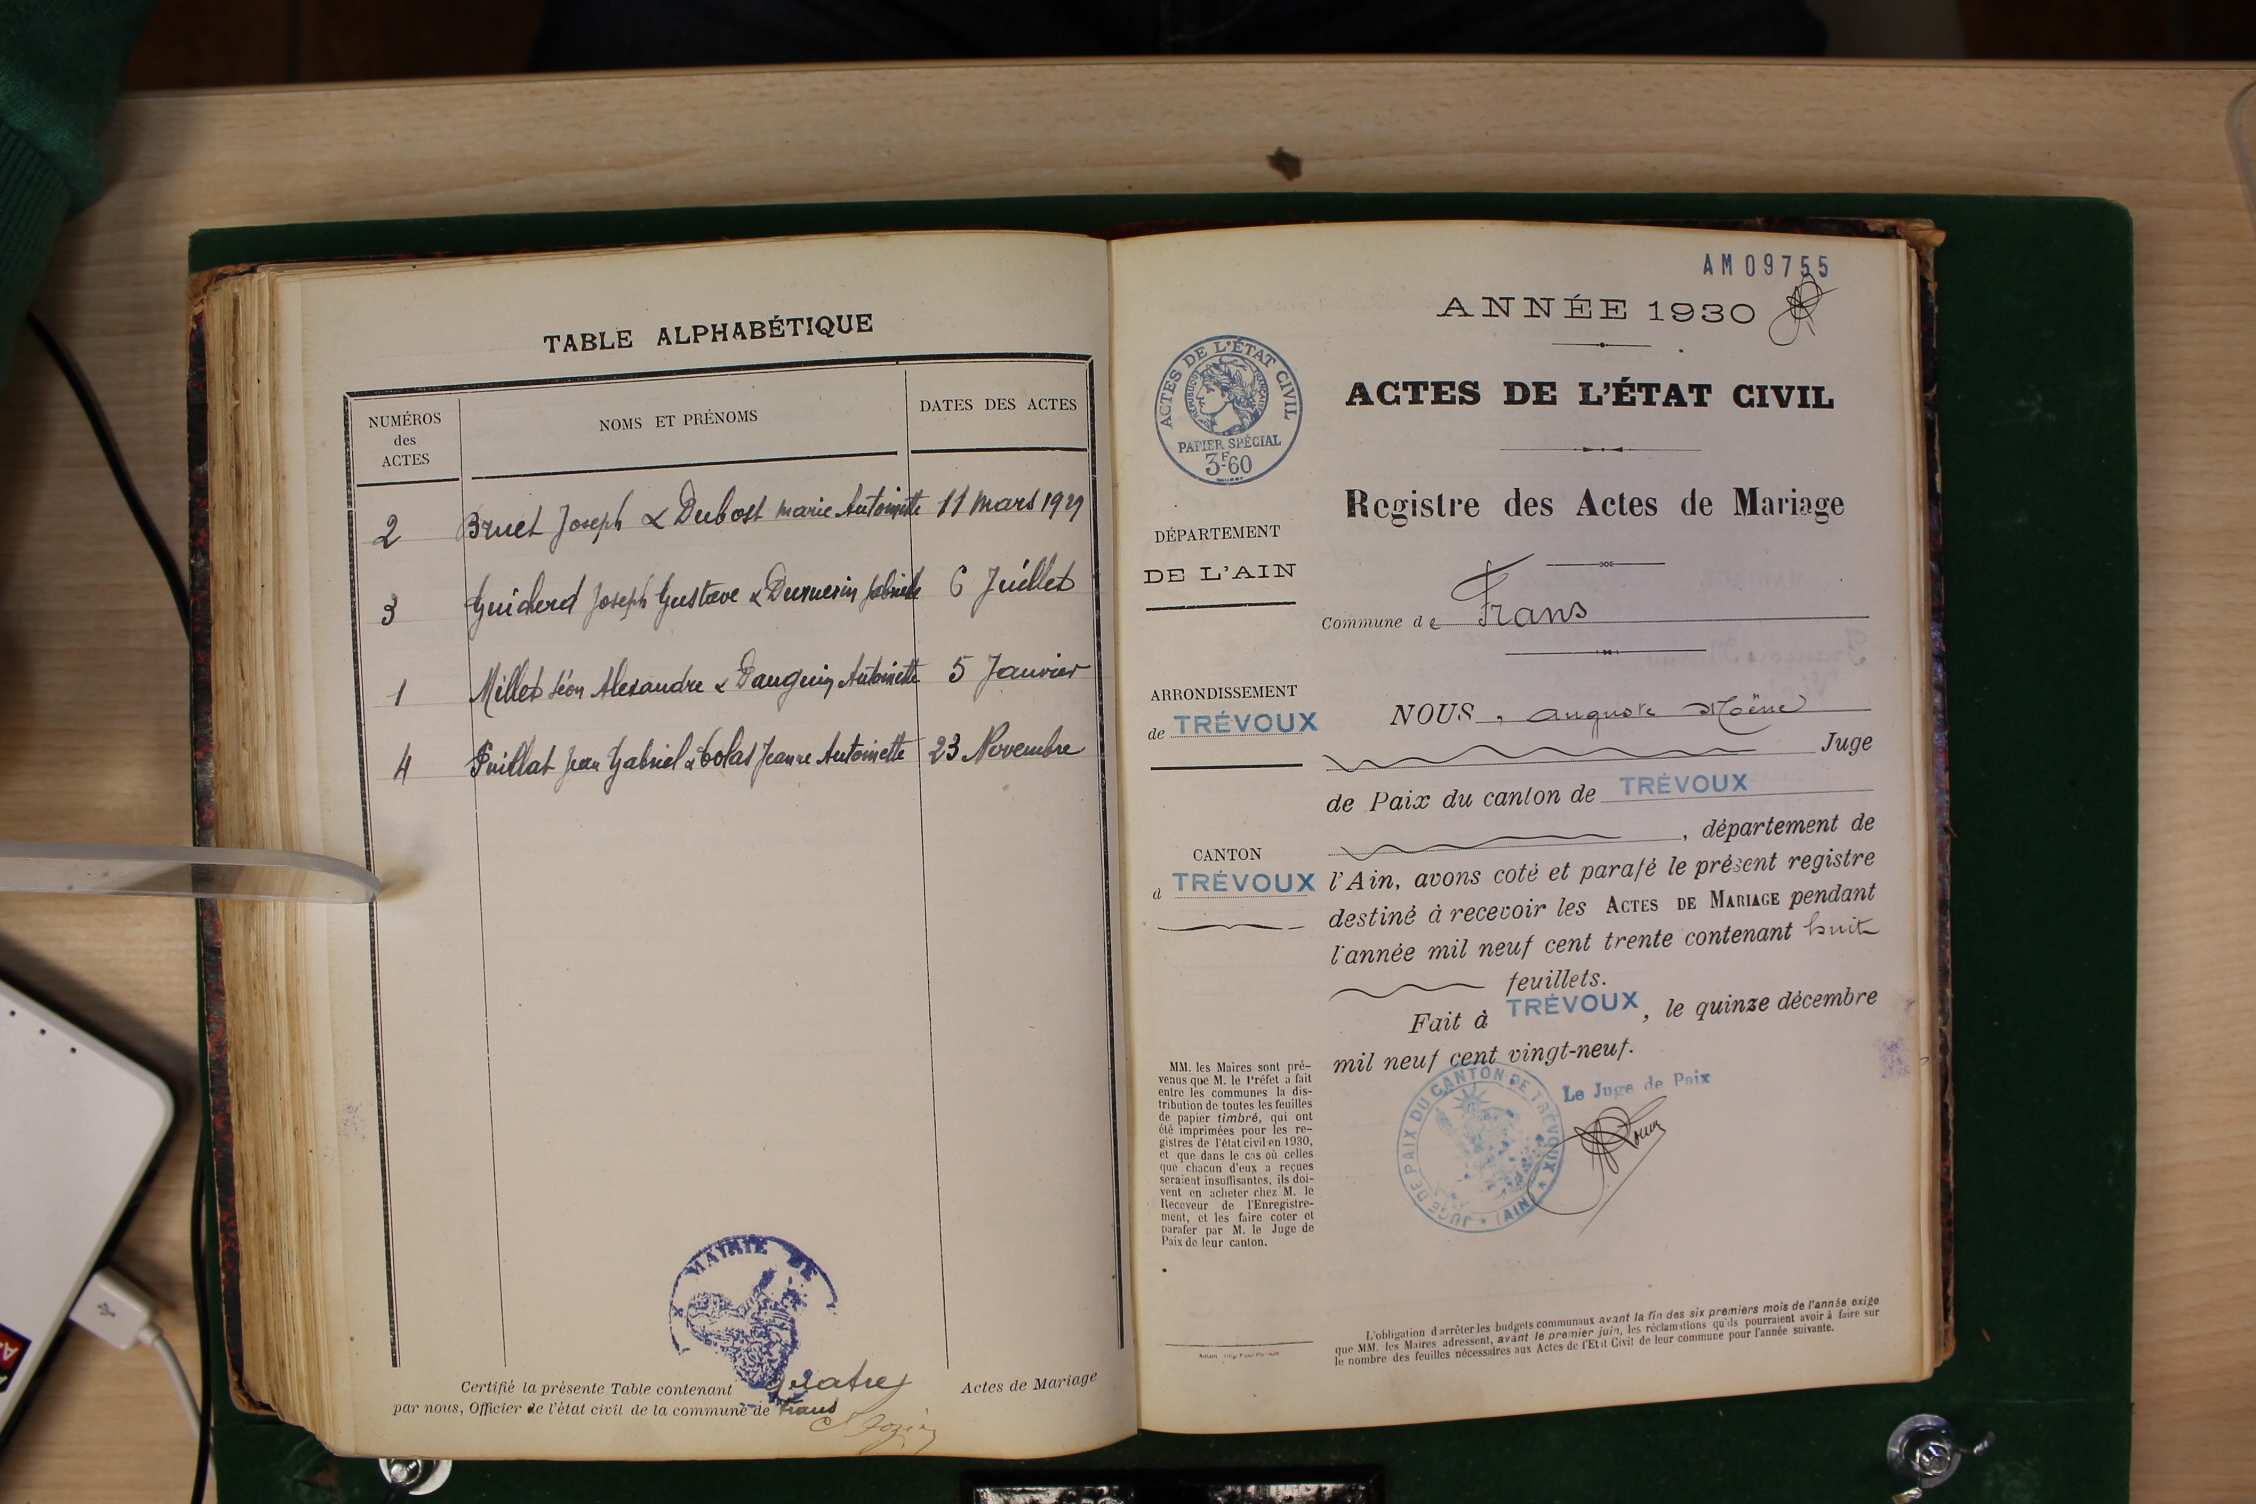 TABLE ALPHABÉTIQUE
NUMÉROS
des
ACTES
NOMS ET PRÉNOMS
DATES DES ACTES
2 Bruet Joseph & Dubost marie Antoinette 11 mars 1929
3 Guicherd Joseph Gustave & Gabrielle 6 Juillet
1 Millet Léon Alexandre & Dauguin Antoinette 5 Janvier
4 Puillat Jean Gabriel & Colas Jeanne Antoinette 23 Novembre
MAIRIE DE
Certifié la présente Table contenant quatre Actes de Mariage
par nous, Officier de l'état civil de la commune de Frans
AM 09755
ANNÉE 1930
ACTES DE L'ÉTAT CIVIL
RÉPUBLIQUE FRANÇAISE
PAPIER SPÉCIAL
3F60
ACTES DE L'ÉTAT CIVIL
Registre des Actes de Mariage
DÉPARTEMENT
DE L'AIN
Commune de Frans
ARRONDISSEMENT
de TRÉVOUX
CANTON
à TRÉVOUX
NOUS, auguste
Juge
de Paix du canton de TRÉVOUX
, département de
l'Ain, avons coté et parafé le présent registre
destiné à recevoir les ACTES DE MARIAGE pendant
l'année mil neuf cent trente contenant huit
feuillets.
Fait à TRÉVOUX, le quinze décembre
mil neuf cent vingt-neuf.
Le Juge de Paix
JUGE DE PAIX DU CANTON DE TRÉVOUX * (AIN) *
MM. les Maires sont pré-
venus que M. le Préfet a fait
entre les communes la dis-
tribution de toutes les feuilles
de papier timbré, qui ont
été imprimées pour les re-
gistres de l'état civil en 1930,
et que dans le cas où celles
que chacun d'eux a reçues
seraient insuffisantes, ils doi-
vent en acheter chez M. le
Receveur de l'Enregistre-
ment, et les faire coter et
parafer par M. le Juge de
Paix de leur canton.
L'obligation d'arrêter les budgets communaux avant la fin des six premiers mois de l'année exige
que MM. les Maires adressent, avant le premier juin, les réclamations qu'ils pourraient avoir à faire sur
le nombre des feuilles nécessaires aux Actes de l'Etat Civil de leur commune pour l'année suivante.